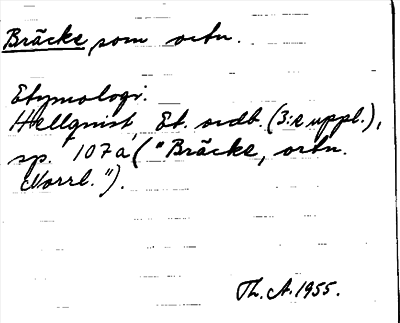 Bräcke som ortn.
Etymologi.
Hellquist, Et. ordb. (3:e uppl.),
sp. 107 a ("Bräcke, ortn.
Norrl.").
Th. A. 1955.